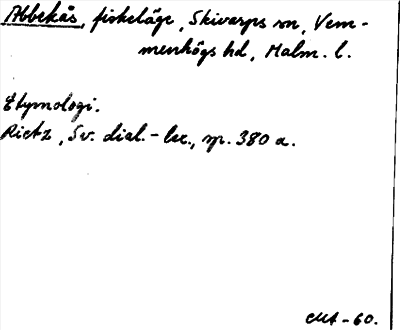 Abbekås, fiskeläge, Skivarps sn, Vem-
menhögs hd, Malm. l.
Etymologi.
Rietz, Sv. dial.-lex., sp. 380 a.
CMA-60.